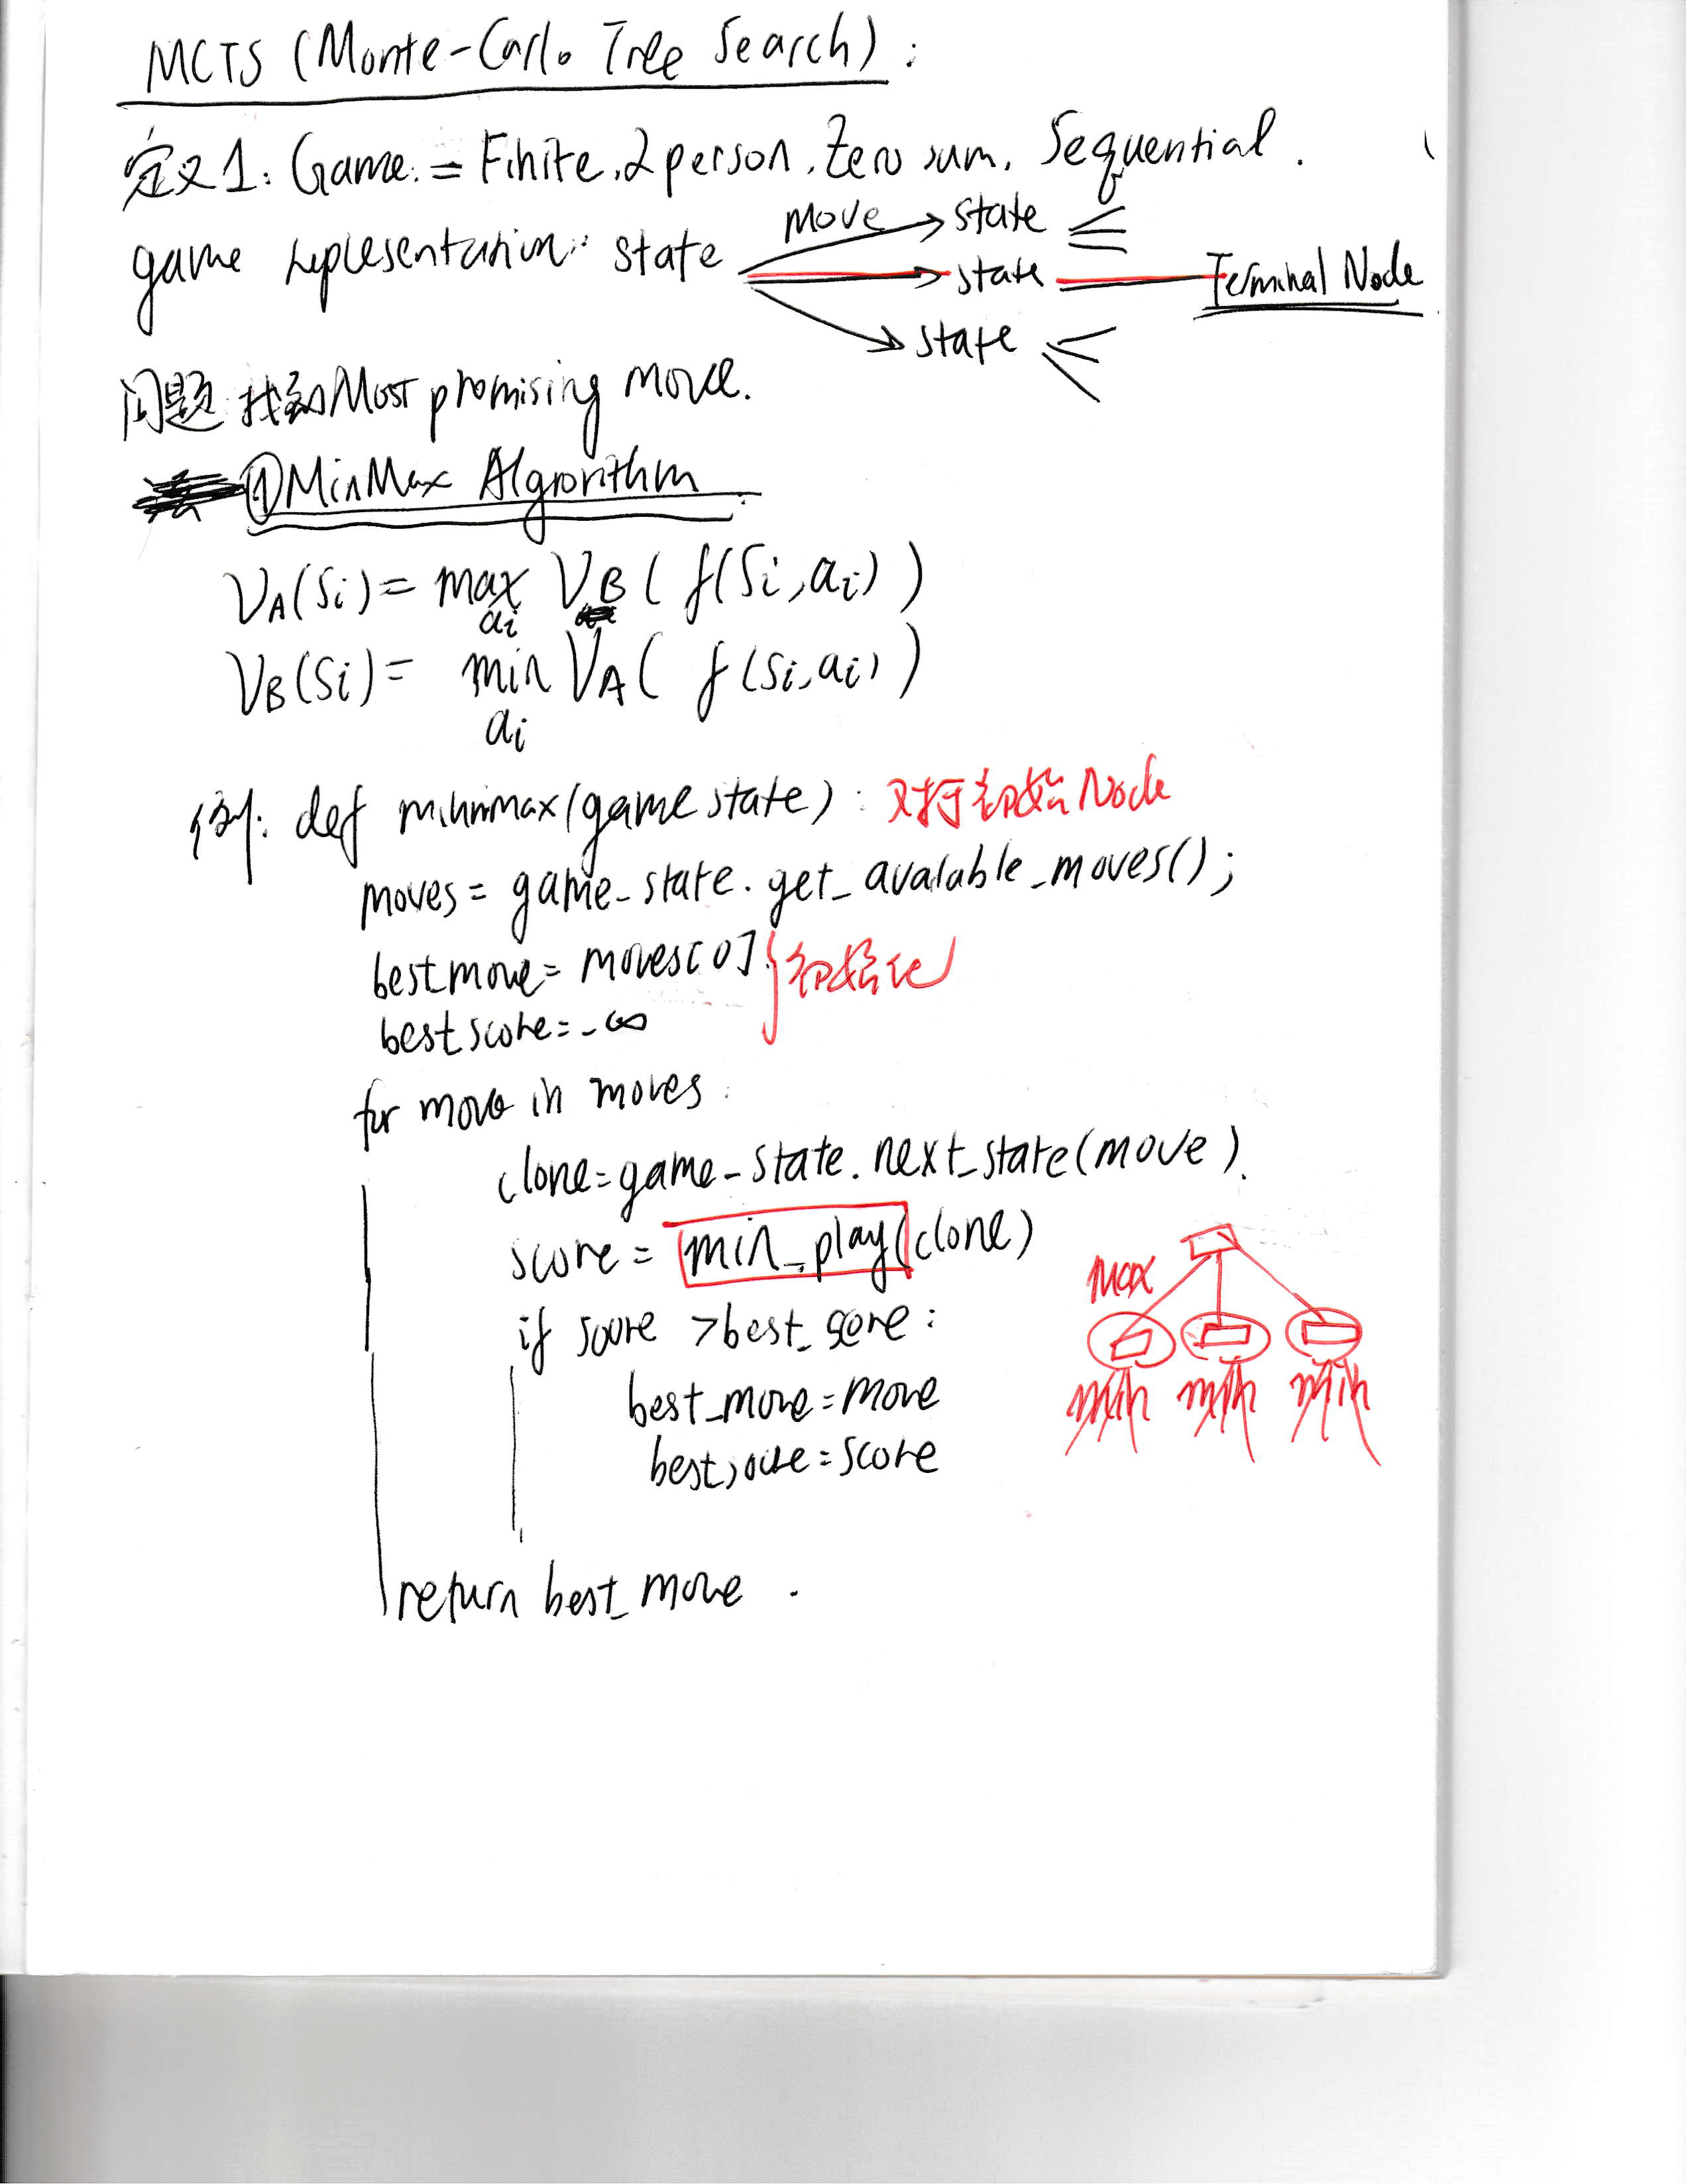 MCTS (Monte-Carlo Tree Search):
定义1: Game: = Finite, 2 person, Zero sum, Sequential.
game representation: state
move
state
state
state
Terminal Node
问题: 找到Most promising move.
①MinMax Algrorithm
V_A(Si) = max_{ai} V_B( f(Si, ai) )
V_B(Si) = min_{ai} V_A( f(Si, ai) )
例: def minimax(game state): 对于初始Node
moves = game_state.get_avalable_moves();
best move = moves[0]
初始化
best score = -∞
for move in moves:
clone = game_state.next_state(move).
score = min_play(clone)
if score > best_score:
best_move = move
best score = score
return best_move.
max
min min min